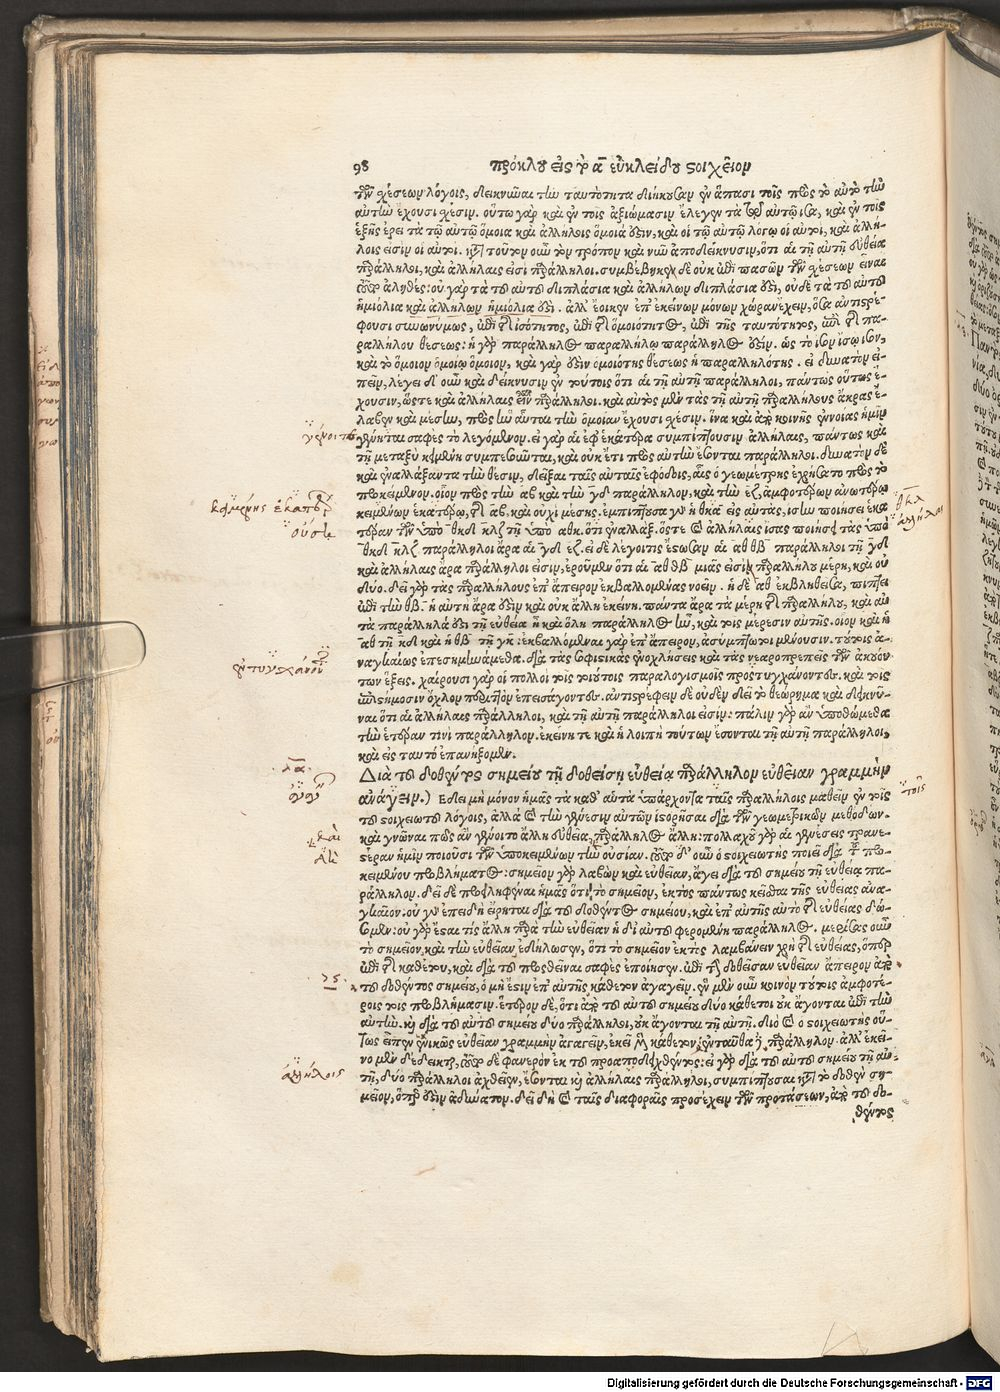 98 πρόκλου εἰς τὸ α εὐκλείδου στοιχεῖον
τῶν σχέσεων λόγοις, δεικνῦναι τὴν ταυτότητα διήκουσαν ἐν ἅπασι τοῖς πρὸς τὸ αὐτὸ τὴν
αὐτὴν ἔχουσι σχέσιν. οὕτω γὰρ καὶ ἐν τοῖς ἀξιώμασιν ἔλεγεν τὰ τῷ αὐτῷ ἴσα, καὶ ἐν τοῖς
ἑξῆς ἐρεῖ τὰ τῷ αὐτῷ ὅμοια καὶ ἀλλήλοις ὅμοιά ἐστιν, καὶ οἱ τῷ αὐτῷ λόγῳ οἱ αὐτοὶ, καὶ ἀλλή-
λοις εἰσὶν οἱ αὐτοί. κατὰ τοῦτον οὖν τὸν τρόπον καὶ νῦν ἀποδείκνυσιν, ὅτι αἱ τῇ αὐτῇ εὐθείᾳ
παράλληλοι, καὶ ἀλλήλαις εἰσὶ παράλληλοι. συμβέβηκεν δὲ οὐκ ἐπὶ πασῶν τῶν σχέσεων εἶναι
τοῦτο ἀληθές: οὐ γὰρ τὰ τοῦ αὐτοῦ διπλάσια καὶ ἀλλήλων διπλάσια ἐστι, οὐδὲ τὰ τοῦ αὐτοῦ
ἡμιόλια καὶ ἀλλήλων ἡμιόλια ἐστι. ἀλλ' ἔοικεν ἐπ' ἐκείνων μόνων χώραν ἔχειν, ὅσα ἀντιστρέ-
φουσι συνωνύμως, ἐπὶ τῆς ἰσότητος, ἐπὶ τῆς ὁμοιότητος, ἐπὶ τῆς ταυτότητος, ἐπὶ τῆς πα-
ραλλήλου θέσεως: ἡ γὰρ παράλληλος παραλλήλῳ παράλληλος ἐστιν. ὡς τὸ ἴσον ἴσῳ ἴσον,
καὶ τὸ ὅμοιον ὁμοίῳ ὅμοιον, καὶ γὰρ ἐστὶν ὁμοιότης θέσεως ἡ παραλληλότης. εἰ δυνατὸν εἰ-
πεῖν, λέγει δ' οὖν καὶ δείκνυσιν ἐν τούτοις ὅτι αἱ τῇ αὐτῇ παράλληλοι, πάντως οὕτως ἔ-
χουσιν, ὥστε καὶ ἀλλήλαις εἶναι παράλληλοι. καὶ αὐτὸς μὲν τὰς τῇ αὐτῇ παραλλήλους ἄκρας ἔ-
λαβεν καὶ μέσην, πρὸς ἣν αὗται τὴν ὁμοίαν ἔχουσι σχέσιν. ἵνα καὶ ἀπὸ κοινῆς ἐννοίας ἡμῖν
γένηται σαφὲς τὸ λεγόμενον. εἰ γὰρ αἱ ἐφ' ἑκάτερα συμπίπτουσιν ἀλλήλαις, πάντως καὶ
τῇ μεταξὺ κειμένῃ συμπεσοῦνται, καὶ οὐκ ἔτι πρὸς αὐτὴν ἔσονται παράλληλοι. δυνατὸν δὲ
καὶ ἐναλλάξαντα τὴν θέσιν, δεῖξαι ταῖς αὐταῖς ἐφόδοις, αἷς ὁ γεωμέτρης ἐχρήσατο πρὸς τὸ
προκείμενον. οἷον πρὸς τὴν αβ καὶ τὴν γδ παράλληλον, καὶ τὴν εζ, ἀμφοτέρων ἀνωτέρω
κειμένων ἑκατέρῳ, τῆς αβ, καὶ οὐχὶ μέσης. ἐμπίπτουσα γὰρ ἡ θκλ εἰς αὐτὰς, ἴσην ποιήσει ἑκα
τέραν τῶν ὑπὸ θκδ κλζ τῇ ὑπὸ αθκ. ὅτι ἐναλλάξ. ὥστε καὶ ἀλλήλαις ἴσας ποιήσει τὰς ὑπὸ
θκδ κλζ παράλληλοι ἄρα αἱ γδ εζ. εἰ δὲ λέγοι τις ἔστωσαν αἱ αθ θβ παράλληλοι τῇ γδ
καὶ ἀλλήλαις ἄρα παράλληλοι εἰσιν, ἐροῦμεν ὅτι αἱ αθ θβ μιᾶς εἰσιν παραλλήλου μέρη, καὶ οὐ
δύο. δεῖ γὰρ τὰς παραλλήλους ἐπ' ἄπειρον ἐκβαλλομένας νοεῖν. ἡ δὲ αθ ἐκβληθεῖσα, πίπτει
ἐπὶ τὴν θβ ἡ αὐτὴ ἄρα ἐστὶν καὶ οὐκ ἄλλη ἐκείνη. πάντα ἄρα τὰ μέρη τῆς παραλλήλου, καὶ αὐ
τὰ παράλληλά ἐστι τῇ εὐθείᾳ ᾗ καὶ ὅλη παράλληλος ἦν, καὶ τοῖς μέρεσιν αὐτῆς. οἷον καὶ ἡ
αθ τῇ κδ καὶ ἡ θβ τῇ γκ: ἐκβαλλόμεναι γὰρ ἐπ' ἄπειρον, ἀσύμπτωτοι μένουσιν. ταῦτα ἀ-
ναγκαίως ἐπεσημῃνάμεθα. διὰ τὰς σοφιστικὰς ἐνοχλήσεις καὶ τὰς νεαροπρεπεῖς τῶν ἀκουόν
των ἕξεις. χαίρουσι γὰρ οἱ πολλοὶ τοῖς τοιούτοις παραλογισμοῖς προστυγχάνοντες. καὶ τοῖς
ἐπιστήμοσιν ὄχλον περιττὸν ἐπεισάγοντες. ἀντιστρέφειν δὲ οὐδὲν δεῖ τὸ θεώρημα καὶ δεικνύ-
ναι ὅτι αἱ ἀλλήλαις παράλληλοι, καὶ τῇ αὐτῇ παράλληλοι εἰσιν: πάλιν γὰρ ἂν ὑποθώμεθα
τὴν ἑτέραν τινὶ παράλληλον. ἐκείνη τε καὶ ἡ λοιπὴ τούτων ἔσονται τῇ αὐτῇ παράλληλοι,
καὶ εἰς ταυτὸ ἐπανήξομεν.
Διὰ τοῦ δοθέντος σημείου τῇ δοθείσῃ εὐθείᾳ παράλληλον εὐθεῖαν γραμμὴν
ἀνάγειν.) Ἔδει μὴ μόνον ἡμᾶς τὰ καθ' αὑτὰ ὑπάρχοντα ταῖς παραλλήλοις μαθεῖν ἐν τοῖς
τοῦ στοιχειωτοῦ λόγοις, ἀλλὰ καὶ τὴν γένεσιν αὐτῶν ἱστορῆσαι διὰ τῶν γεωμετρικῶν μεθόδων.
καὶ γνῶναι πῶς ἂν γένοιτο ἄλλη εὐθεῖα, παράλληλος ἄλλῃ: πολλαχοῦ γὰρ αἱ γενέσεις τρανε-
στέραν ἡμῖν ποιοῦσι τῶν ὑποκειμένων τὴν οὐσίαν. τοῦτο δ' οὖν ὁ στοιχειωτὴς ποιεῖ διὰ τοῦ προ-
κειμένου προβλήματος: σημεῖον γὰρ λαβὼν καὶ εὐθεῖαν, ἄγει διὰ τοῦ σημείου τῇ εὐθείᾳ πα-
ράλληλον. δεῖ δὲ προειληφέναι ἡμᾶς ὅτι τὸ σημεῖον, ἐκτὸς πάντως κεῖσθαι τῆς εὐθείας ἀνα-
γκαῖον. οὐ γὰρ ἐπειδὴ εἴρηται διὰ τοῦ δοθέντος σημείου, καὶ ἐπ' αὐτῆς αὐτὸ τῆς εὐθείας δώ-
σομεν: οὐ γὰρ ἔσται τις ἄλλη παρὰ τὴν εὐθεῖαν ἡ δι' αὐτοῦ φερομένη παράλληλος. μερίσας οὖν
τὸ σημεῖον, καὶ τὴν εὐθεῖαν ἐδήλωσεν, ὅτι τὸ σημεῖον ἐκτὸς λαμβάνειν χρὴ τῆς εὐθείας, ὅπερ
ἐπὶ τῆς καθέτου, καὶ διὰ τοῦ προσθεῖναι σαφὲς ἐποίησεν. ἐπὶ τὴν δοθεῖσαν εὐθεῖαν ἄπειρον ἀπὸ
τοῦ δοθέντος σημείου, ὃ μή ἐστιν ἐπ' αὐτῆς κάθετον ἀγαγεῖν. ἓν μὲν οὖν κοινὸν τούτοις ἀμφοτέ-
ροις τοῖς προβλήμασιν. ἕτερον δὲ, ὅτι ἀπὸ τοῦ αὐτοῦ σημείου δύο κάθετοι οὐκ ἄγονται ἐπὶ τὴν
αὐτήν. καὶ διὰ τοῦ αὐτοῦ σημείου δύο παράλληλοι, οὐκ ἄγονται τῇ αὐτῇ. διὸ καὶ ὁ στοιχειωτὴς οὕ-
τως εἶπεν ἑνικῶς εὐθεῖαν γραμμὴν ἀγαγεῖν, ἐκεῖ μὲν κάθετον, ἐνταῦθα δὲ παράλληλον. ἀλλ' ἐκεῖ-
νο μὲν δέδεικται, τοῦτο δὲ φανερὸν ἐκ τοῦ προαποδειχθέντος: εἰ γὰρ διὰ τοῦ αὐτοῦ σημείου τῇ αὐ-
τῇ, δύο παράλληλοι ἀχθεῖεν, ἔσονται καὶ ἀλλήλαις παράλληλοι, συμπίπτουσαι κατὰ τὸ δοθὲν ση-
μεῖον, ὅπερ ἐστὶν ἀδύνατον. δεῖ δὴ καὶ ταῖς διαφοραῖς προσέχειν τῶν προτάσεων, ἀπὸ τοῦ δο-
θέντος
ἀλλήλοις
Digitalisierung gefördert durch die Deutsche Forschungsgemeinschaft - DFG